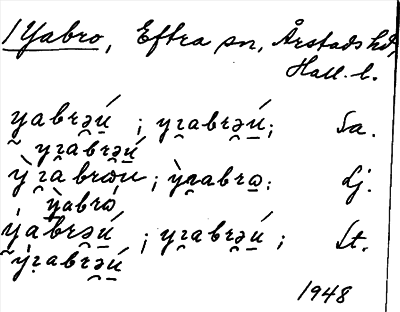 /Yabro, Eftra sn, Årstads hd,
Hall. l.
yabrə̯ú ; yɽabrə̯ú; Sa.
~ yɽabrə̯ú
ỳɽabrω̣u ; ỳɽabrω: Lj.
ỳabrω
ýabrə̯ú ; yɽabrə̯ú ; St.
~ ýɽabrə̯ú
1948